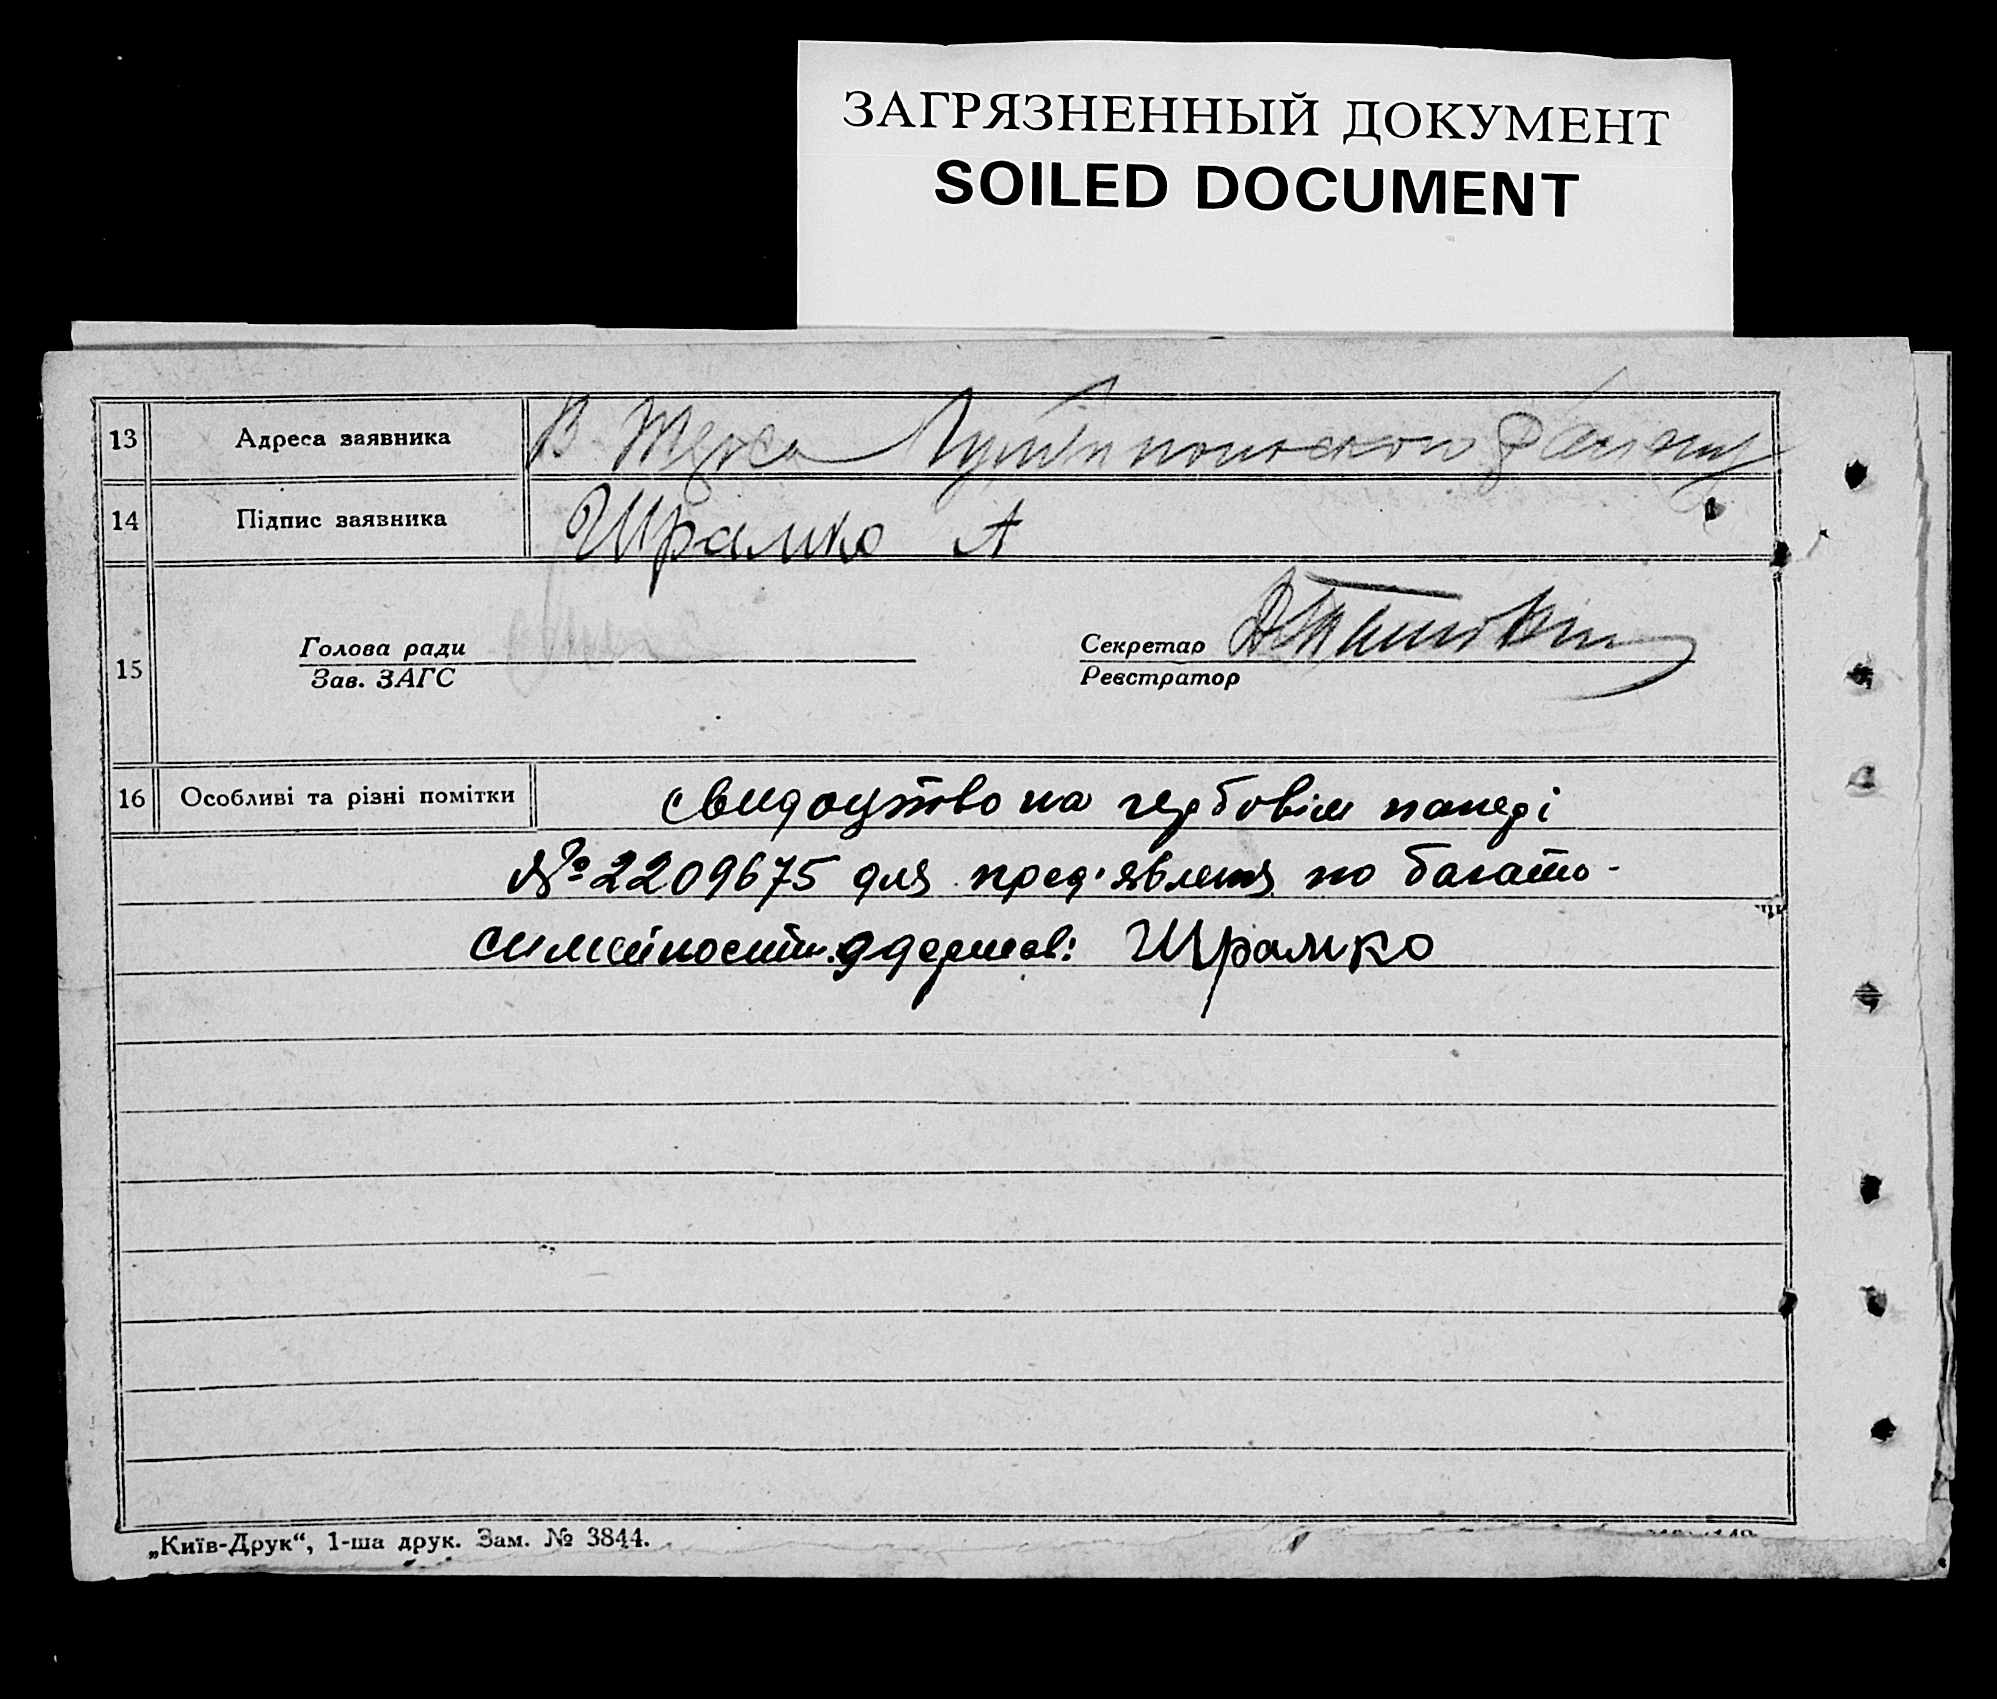 ЗАГРЯЗНЕННЫЙ ДОКУМЕНТ
SOILED DOCUMENT
13 Адреса заявника В.
14 Підпис заявника Шрамко А
15 Голова ради Секретар
Зав. ЗАГС Реєстратор
16 Особливі та різні помітки свидоцтво на гербовім папері
№ 2209675 для пред'явленя по багато-
симейности. одержав: Шрамко
„Київ-Друк“, 1-ша друк. Зам. № 3844.